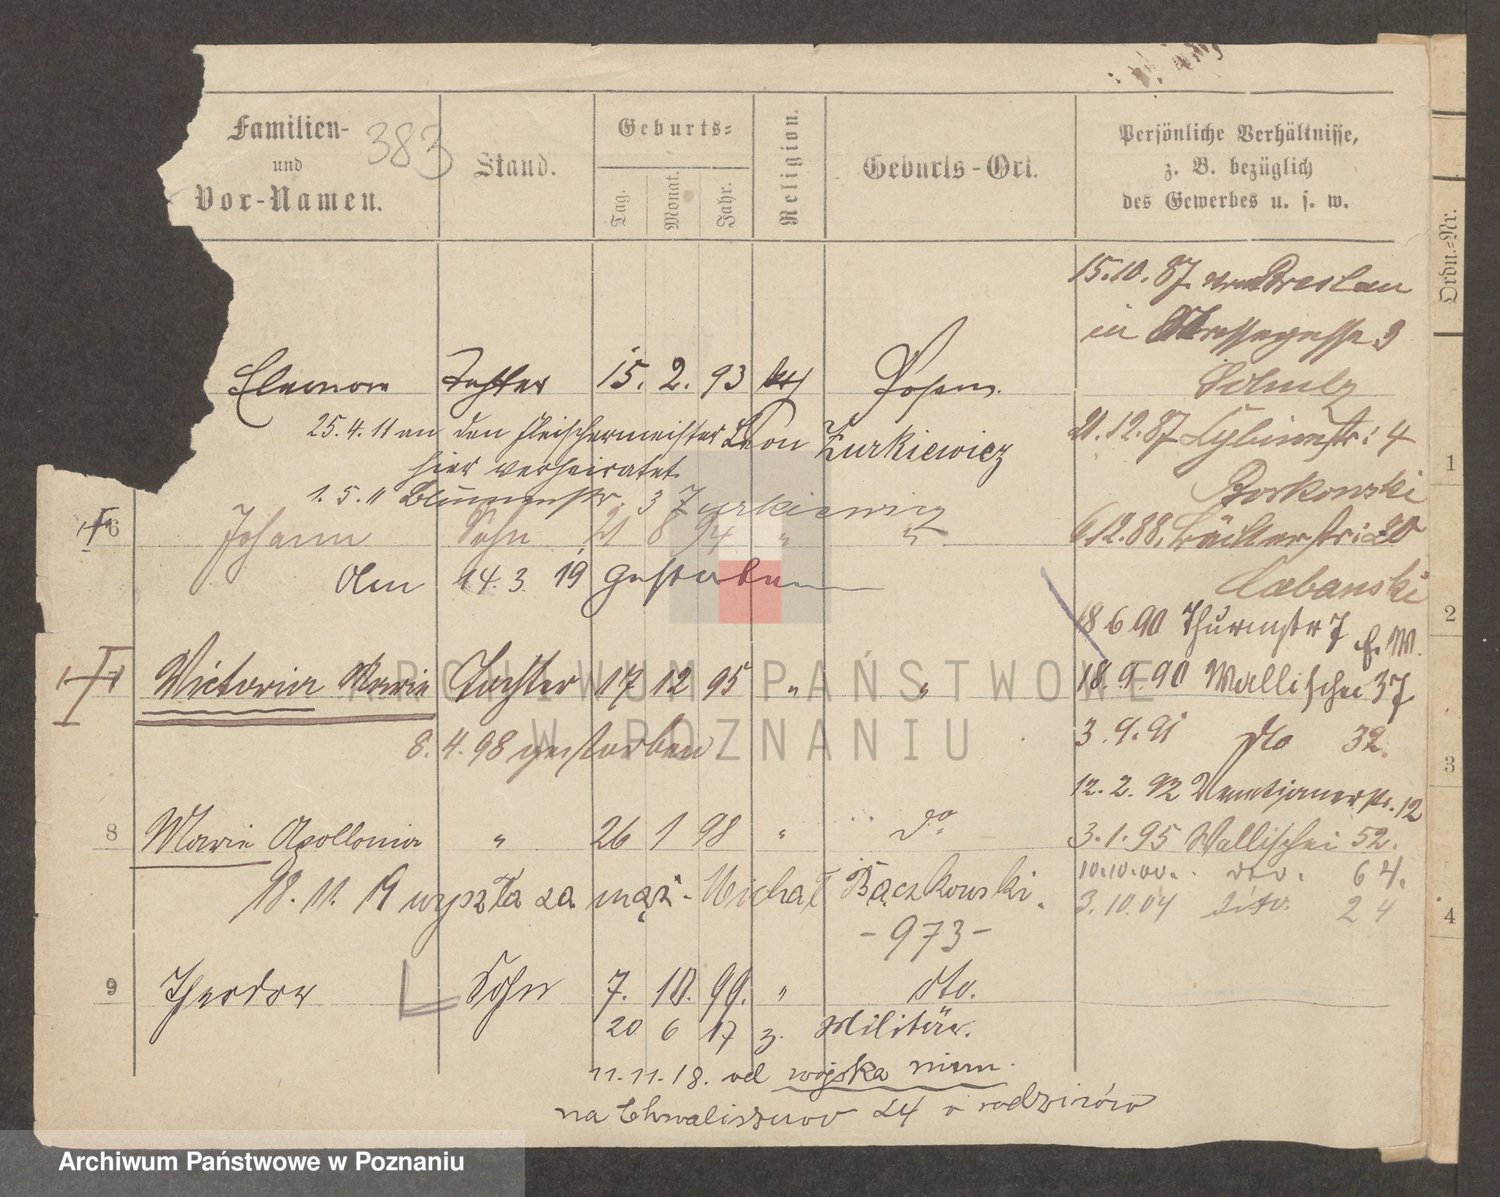 383
Familien-
und
Vor-Namen.
Stand.
Geburts-
Tag.
Monat.
Jahr.
Religion.
Geburts-Ort.
Persönliche Verhältnisse,
z. B. bezüglich
des Gewerbes u. s. w.
Ordn.-Nr.
Eleonore Tochter 15. 2. 93 Posen.
25. 4. 11 an den Fleischermeister Leon Zurkiewicz
hier verheiratet
1. 5. 11 Blumenstr. 3 Zurkiewicz
6 Johann Sohn 21 8 94 " "
Am 14. 3. 19 gestorben
Victoria Marie Tochter 17 12 95 " "
8. 4. 98 gestorben
8 Marie Apollonia " 26 1 98 " do
18. 11. 19 wyszła za mąż - Michał Bączkowski.
- 973 -
9 Theodor Sohn 7. 10. 99. " dto.
20 6 17 z. Militär.
11. 11. 18. od wojska niem.
na Chwaliszewo 24 o rodziców
15. 10. 87 von Breslau
in 3
21. 12. 87 4
Borkowski
6. 12. 88. Büttelstr: 20
Labanski
18 6 90 Thurmstr 7
18. 9. 90 Wallischei 37
3. 9. 91 dto 32.
12. 2. 92 Venetianerstr. 12
3. 1. 95 Wallischei 52.
10.10.00. dto. 64.
3. 10. 04 dito. 24
1
2
3
4
ARCHIWUM PAŃSTWOWE
W POZNANIU
Archiwum Państwowe w Poznaniu